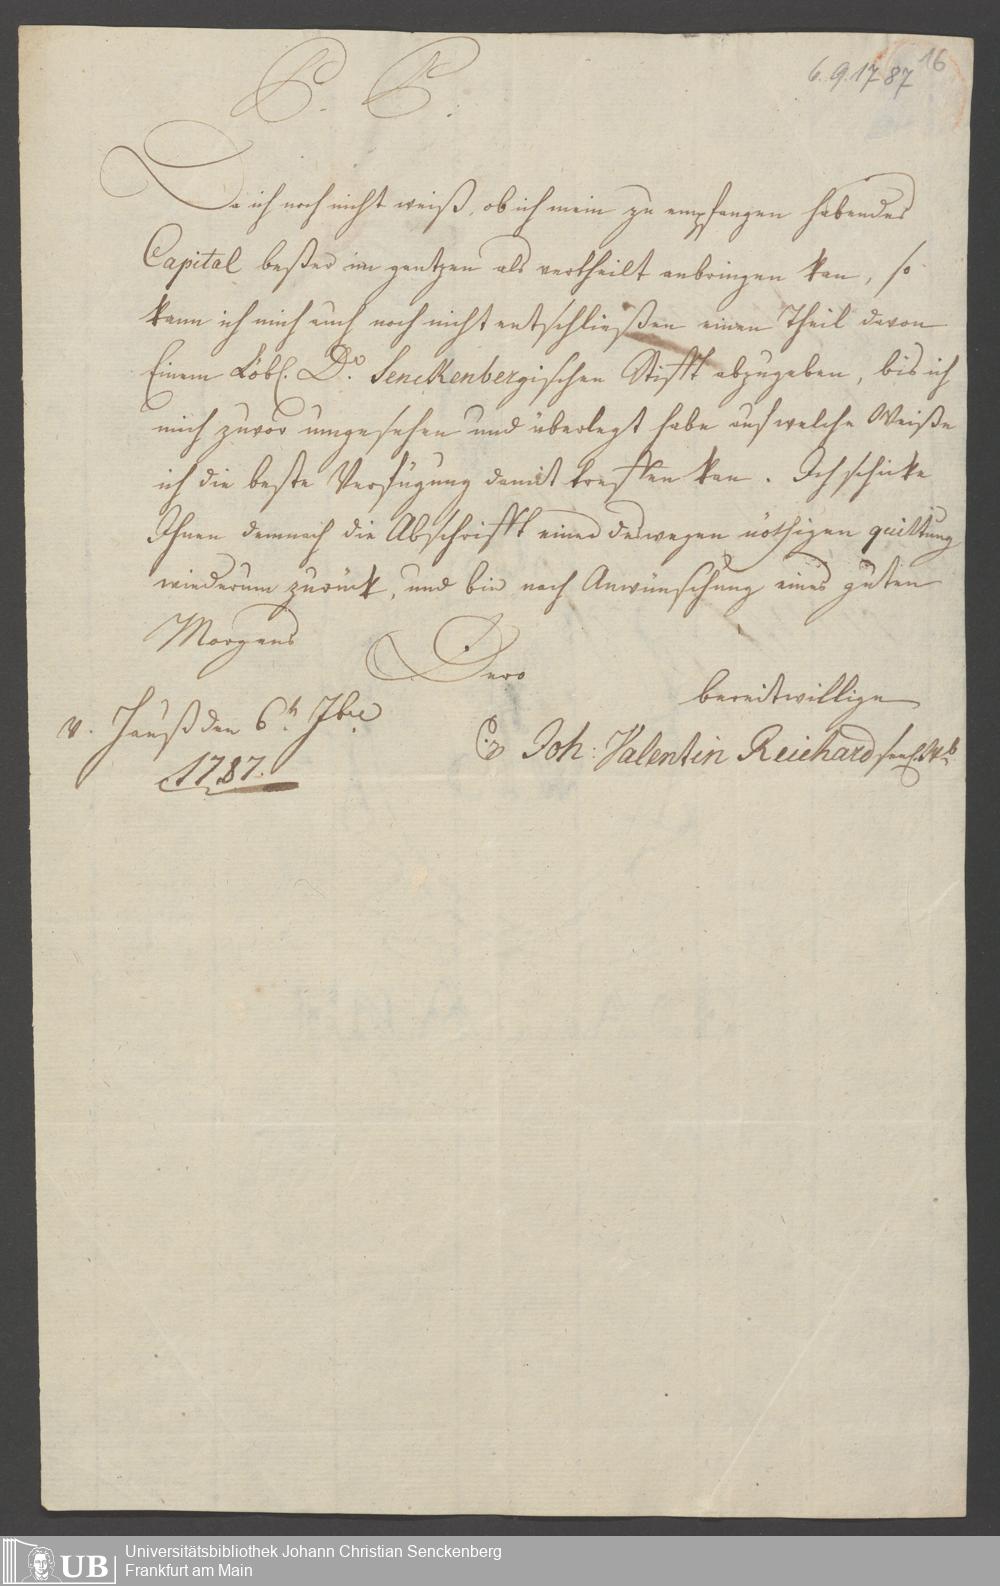 16
6.9.1787
P. P.
Da ich noch nicht weiß, ob ich mein zu empfangen habendes
Capital beßer im gantzen als vertheilt anbringen kan, so
kann ich mich auch noch nicht entschließen einen Theil davon
Einem Löbl. Dr. Senckenbergischen Stifft abzugeben, bis ich
mich zuvor umgesehen und überlegt habe auf welche Weiße
ich die beste Verfügung damit treffen kan. Ich schicke
Ihnen demnach die Abschrifft einer deswegen nöthigen quittung
wiederum zurück, und bin nach Anwünschung eines guten
Morgens
Dero
bereitwillige
v. Hauß den 6t. 7bre
1787.
Joh: Valentin Reichard
Universitätsbibliothek Johann Christian Senckenberg
Frankfurt am Main
UB